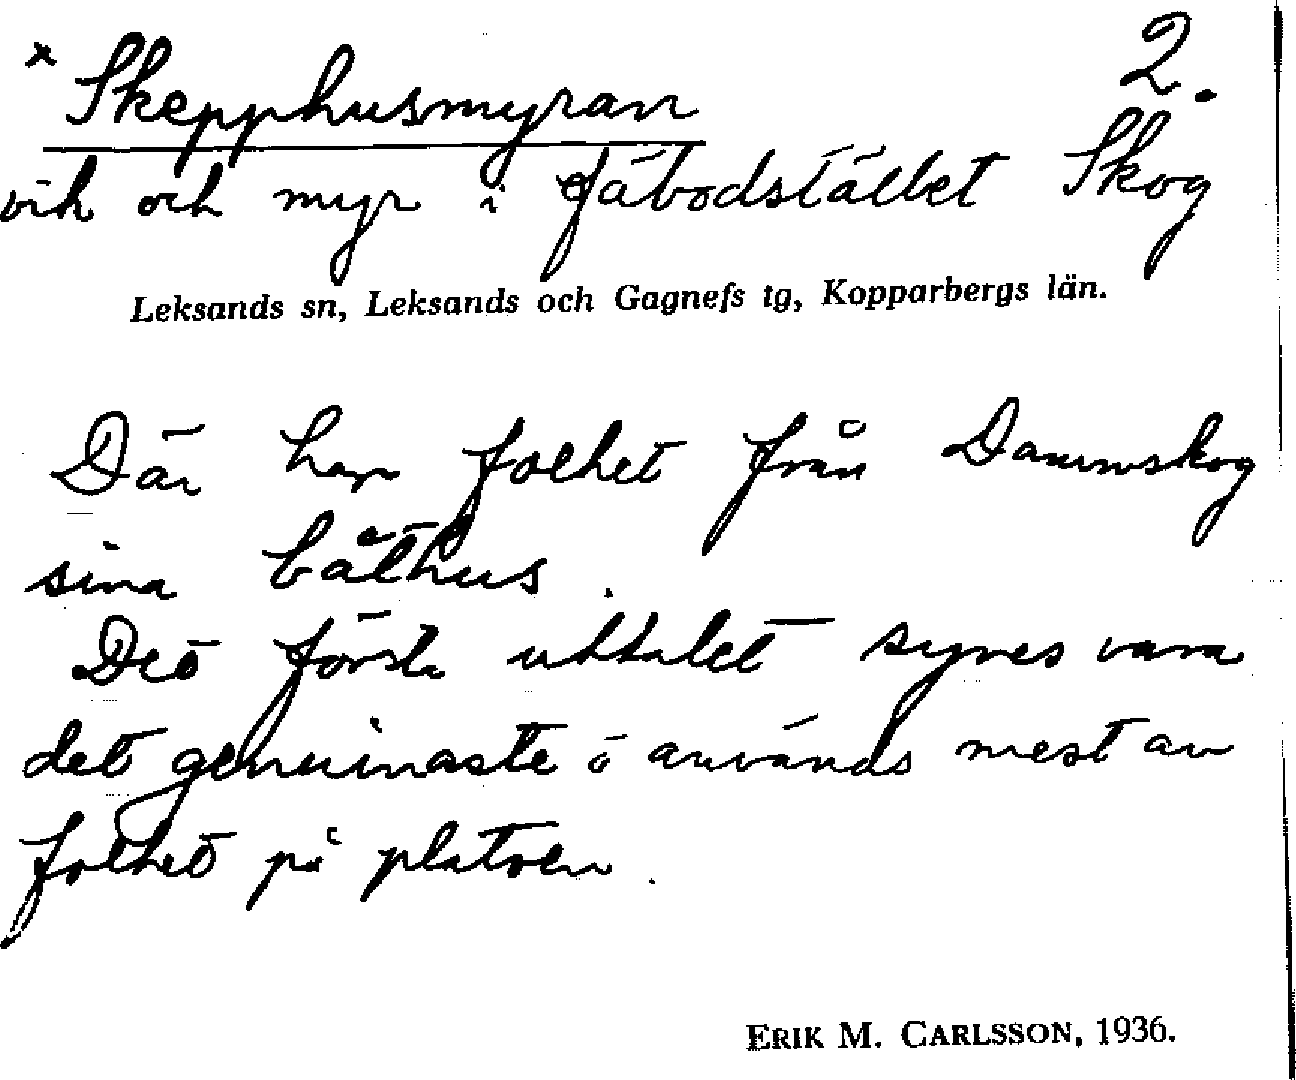 * Skepphusmyran 2.
vik och myr i fäbodstället Skog
Leksands sn, Leksands och Gagnefs tg, Kopparbergs län.
Där har folket från Dammskog
sina båthus.
Det första uttalet synes vara
det genuinaste o användes mest av
folket på platsen.
ERIK M. CARLSSON, 1936.